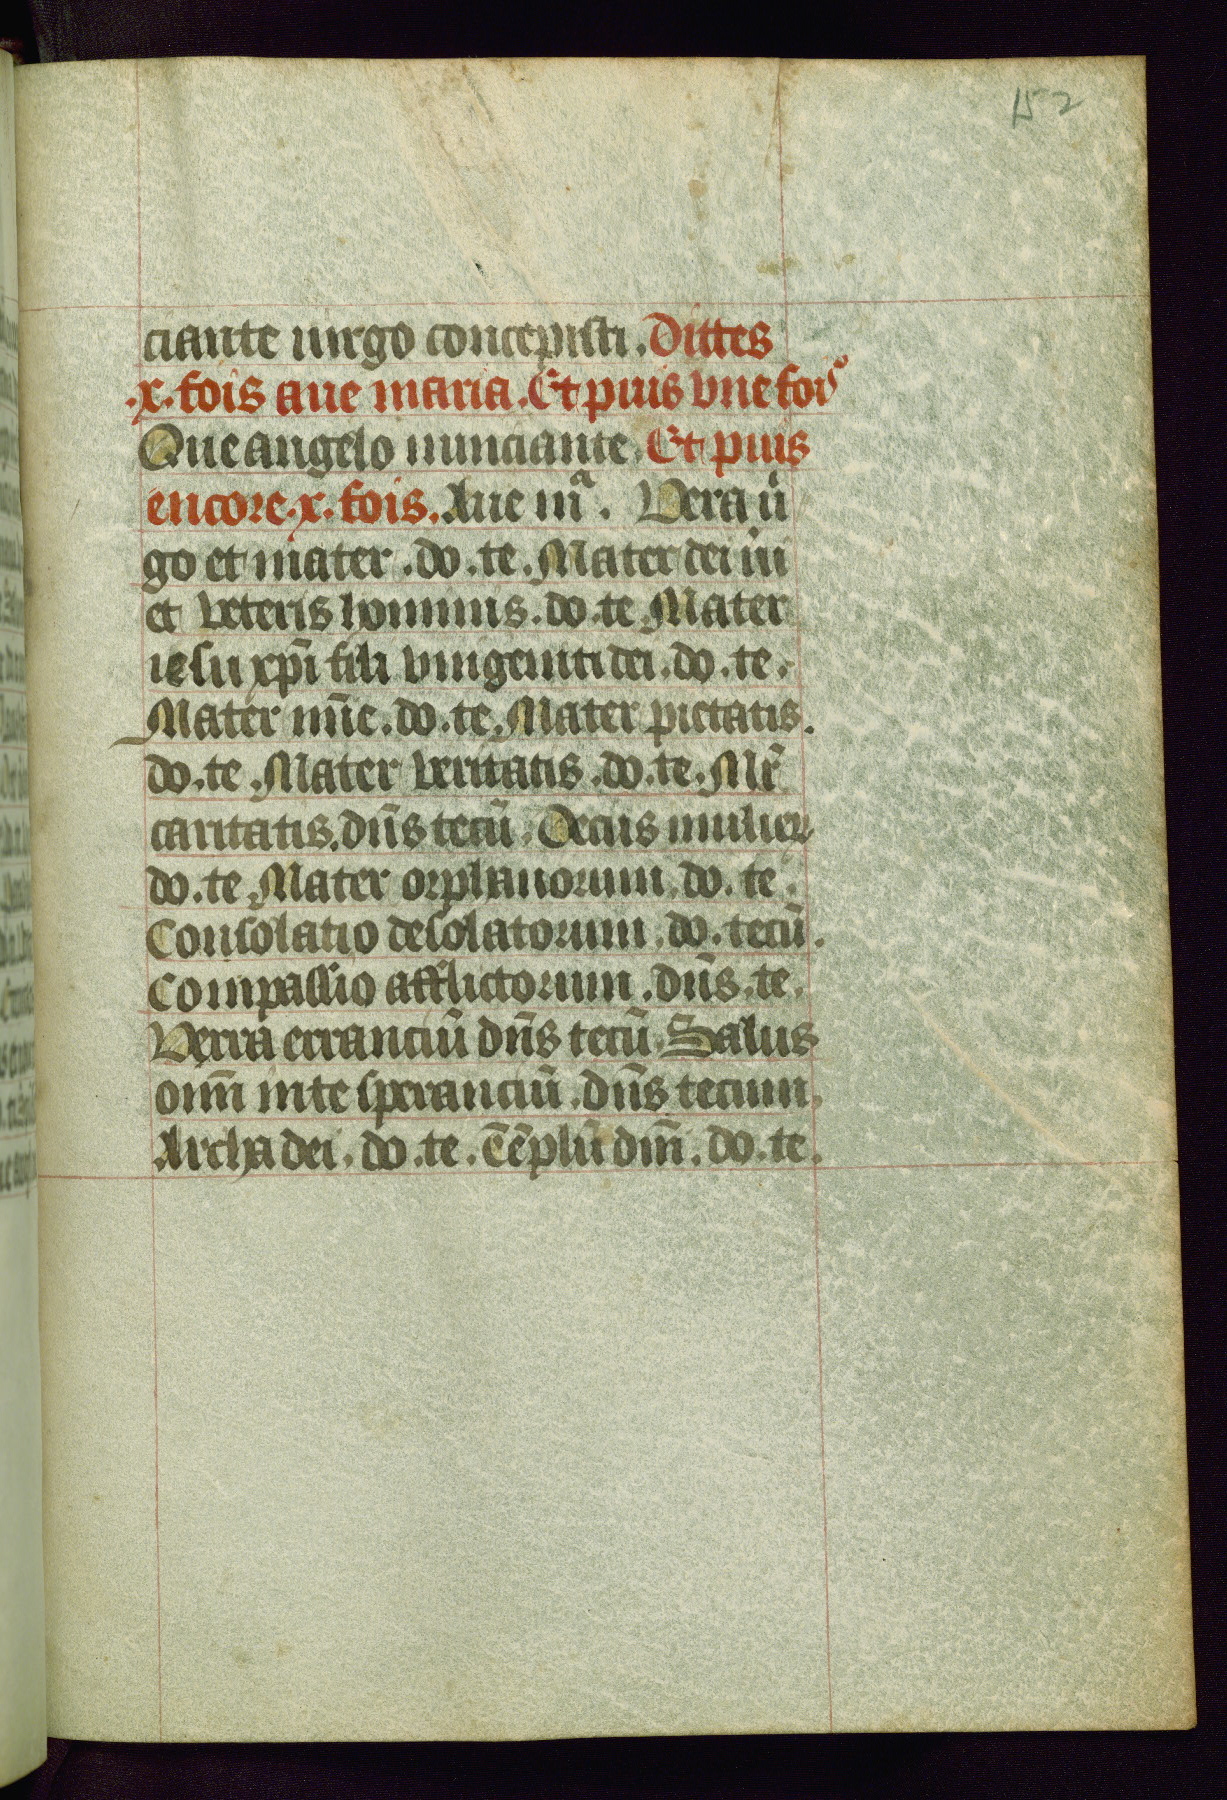 152
ciante uirgo concepisti. Dittes
.x. fois aue maria. Et puis vne fois
Que angelo nunciante. Et puis
encore .x. fois. Aue mᵃ. Vera uͥ
go et mater. do. te. Mater dei
et veteris hominis. do. te. Mater
iesu xp̄i fili vnigeniti dei. do. te.
Mater mīe. do. te. Mater pietatis.
do. te. Mater veritatis. do. te. Mr̄
caritatis. dn̄s tecū. Decus mulieꝝ
do. te. Mater orphanorum. do. te.
Consolatio desolatorum. do. tecū.
Compassio afflictorum. dn̄s. te.
Verra^a erranciū dn̄s tecū. Salus
om̄i in te speranciū. dn̄s tecum.
Archa dei. do. te. Tēplū dn̄i. do. te.